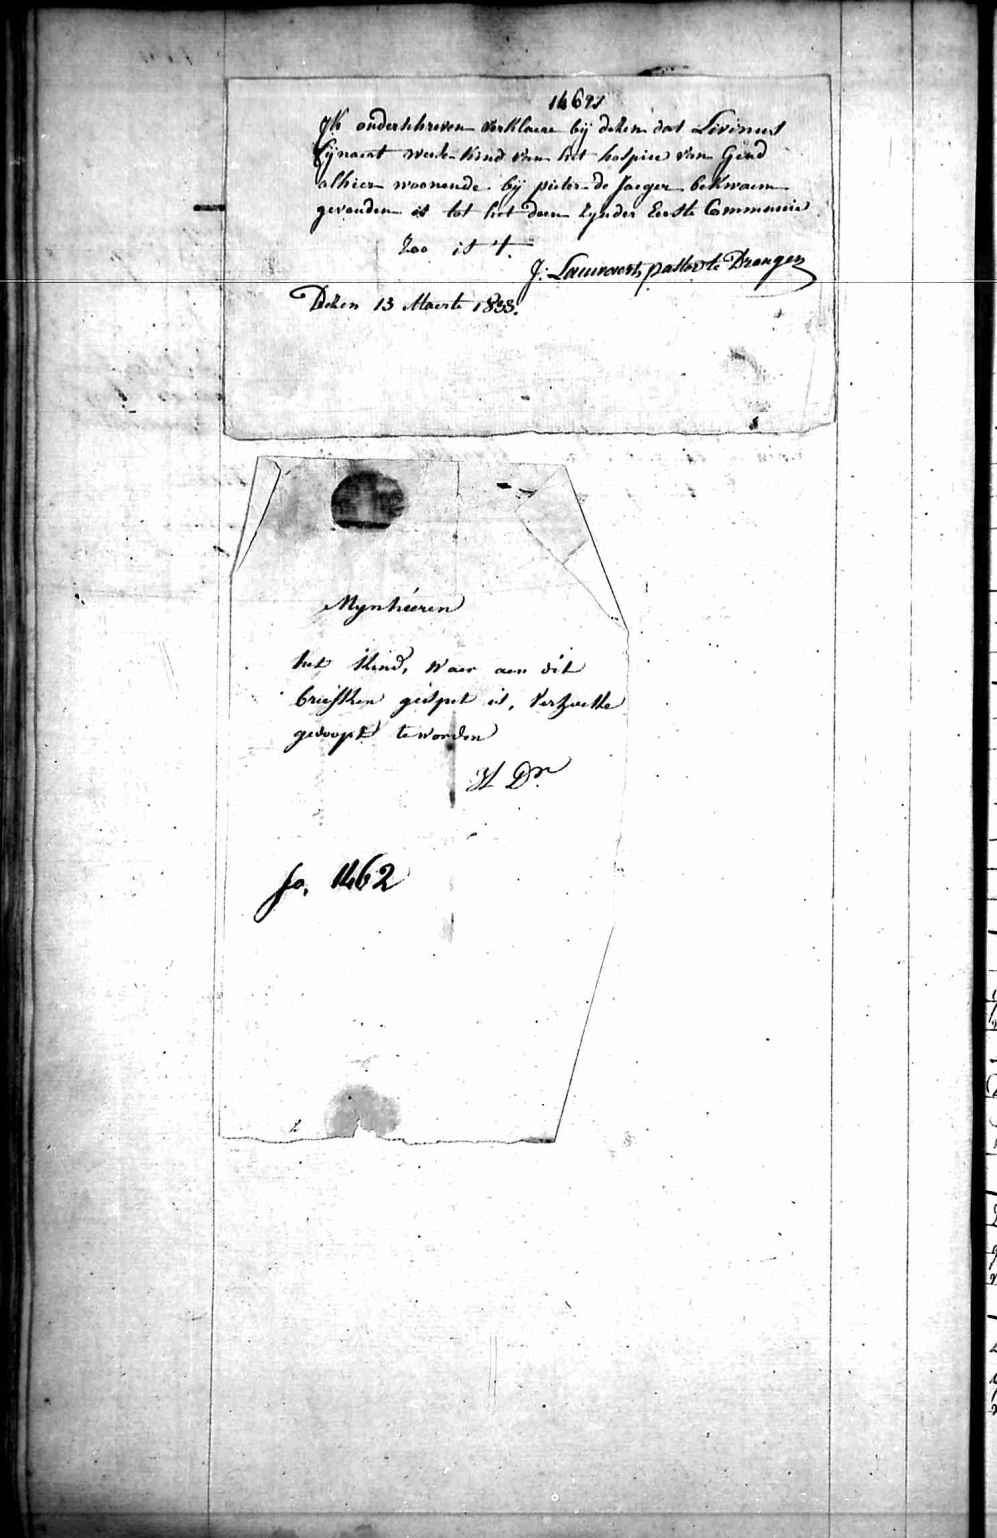 1462
Jk onderschreven verklaere bij dezen dat Livinus
Eijnaert weeze kind van het hospice van Gend
alhier woonende bij pieter de Jaeger bekwaem
gevonden is tot het doen zynder Eerste Communie
Zoo is 't.
J: pastor te Drongen
Dezen 13 Maerte 1833.
Mynhéeren
het Kind, waer aen dit
briefken géspet is, verzoeke
gedoopt te worden
Dr.
fo, 1462